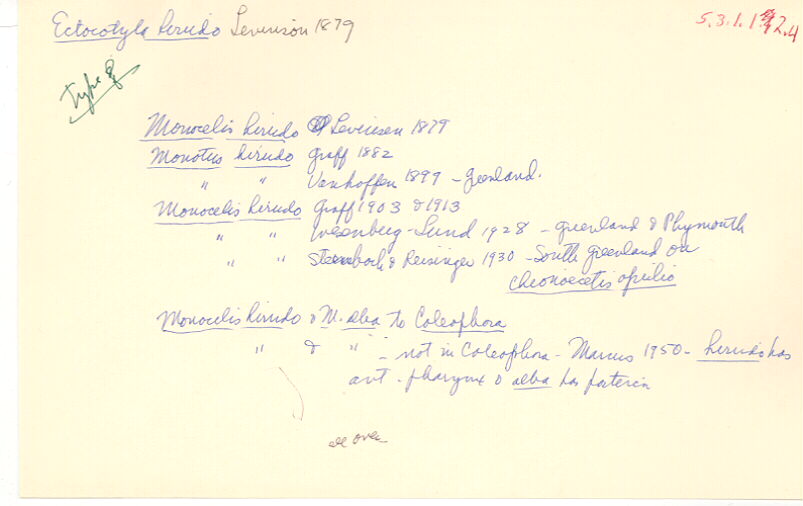 Ectocotyla hirudo Levinson 1879
5.3.1.1 2.4
Type of
Monocelis hirudo Levinsen 1879
Monotus hirudo Graff 1882
" " Vanhoffen 1897 - Greenland.
Monocelis hirudo Graff 1903 & 1913
" " Wesenberg-Lund 1928 - Greenland & Plymouth
" " Steinbock & Reisinger 1930 - South Greenland on
Chionoecetis opilio
Monocelis hirudo & M. alba to Coleophora
" & " - not in Coleophora - Marcus 1950 - hirudo has
ant. pharynx & alba has posterior
all over